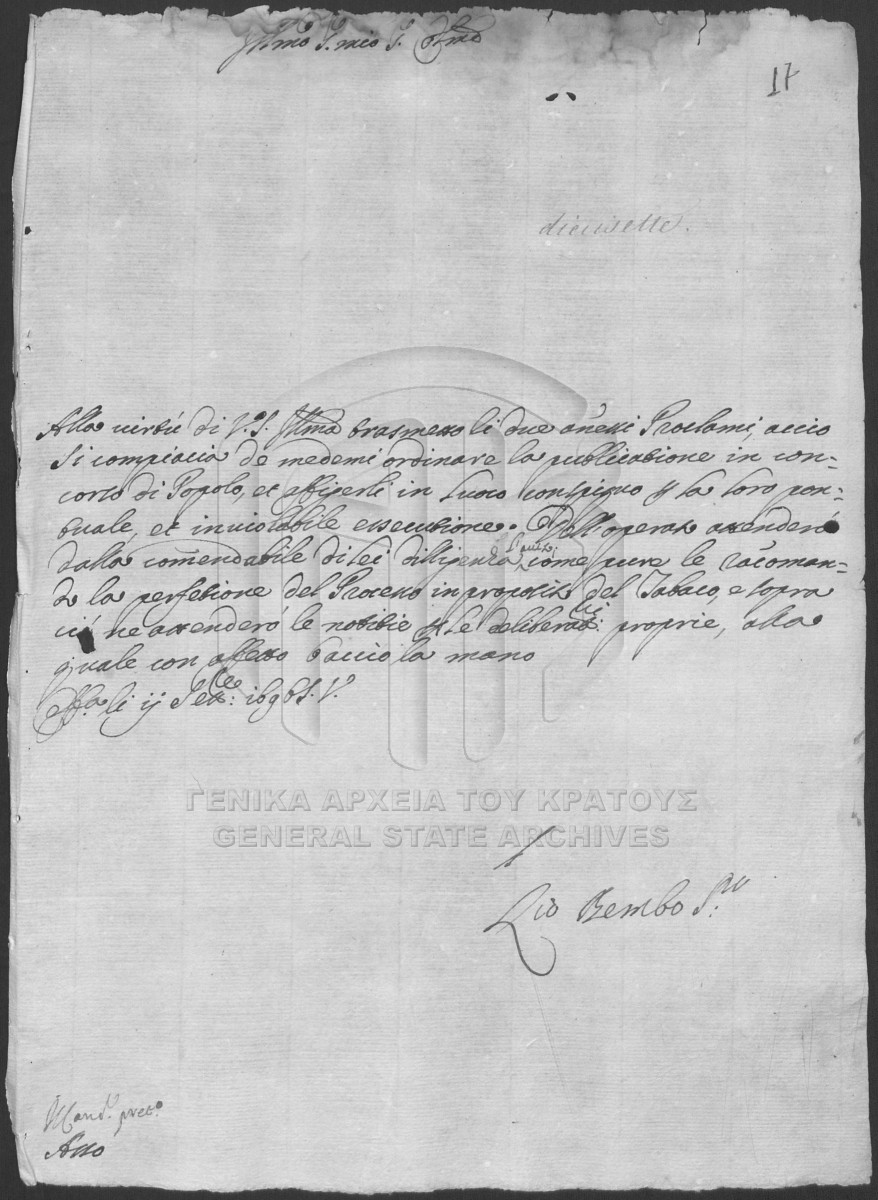 Illmo S. mio S. Ossmo
17
diecisette.
Alla virtù di V. S. Illma trasmetto li due añessi Proclami, acciò
si compiacia de medemi ordinare la publicatione in con=
corso di Popolo, et affigerli in luoco conspicuo p la loro pon=
tuale, et inviolabile essecutione. Dell'operato attenderò
dalla comendabile di lei diligenza come pure le racoman=
do la perfetione del Processo in proposito del Tabaco, e sopra
ciò ne attenderò le notitie p le deliberat:ni proprie, alla
quale con affetto baccio la mano
li ij Sett:re 1696 S. V.
ΓΕΝΙΚΑ ΑΡΧΕΙΑ ΤΟΥ ΚΡΑΤΟΥΣ
GENERAL STATE ARCHIVES
Bembo